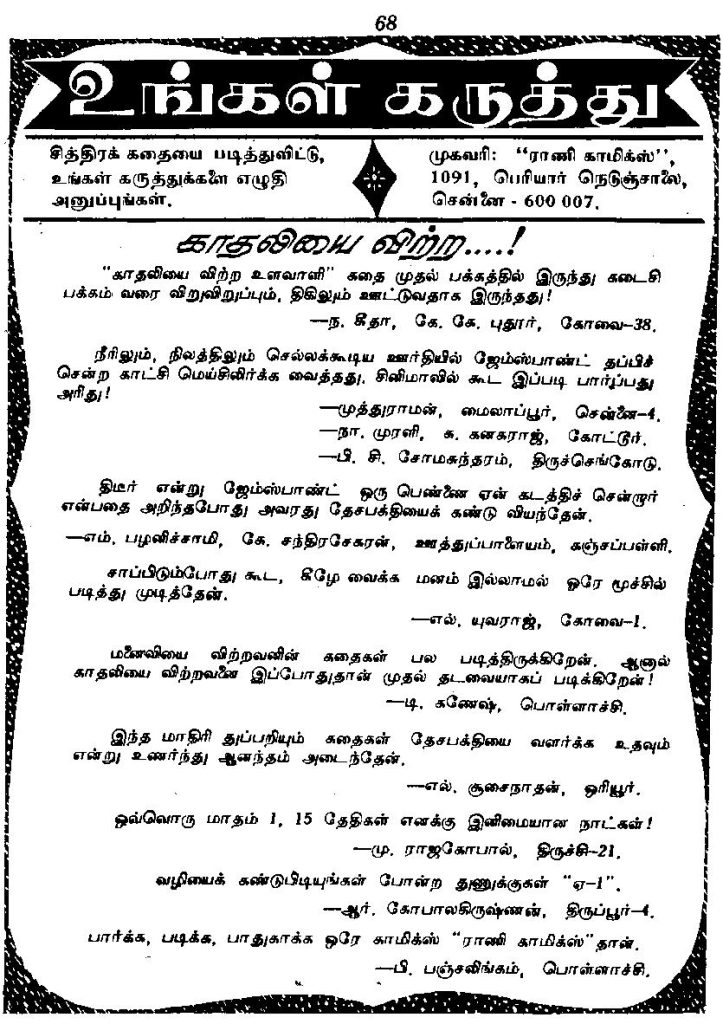 68
உங்கள் கருத்து
சித்திரக் கதையை படித்துவிட்டு,
உங்கள் கருத்துக்களை எழுதி
அனுப்புங்கள்.
முகவரி: “ராணி காமிக்ஸ்”,
1091, பெரியார் நெடுஞ்சாலை,
சென்னை - 600 007.
காதலியை விற்ற....!
“காதலியை விற்ற உளவாளி” கதை முதல் பக்கத்தில் இருந்து கடைசி
பக்கம் வரை விறுவிறுப்பும், திகிலும் ஊட்டுவதாக இருந்தது!
—ந. கீதா, கே. கே. புதூர், கோவை–38.
நீரிலும், நிலத்திலும் செல்லக்கூடிய ஊர்தியில் ஜேம்ஸ்பாண்ட் தப்பிச்
சென்ற காட்சி மெய்சிலிர்க்க வைத்தது. சினிமாவில் கூட இப்படி பார்ப்பது
அரிது!
—முத்துராமன், மைலாப்பூர், சென்னை–4.
—நா. முரளி, க. கனகராஜ், கோட்டூர்.
—பி. சி. சோமசுந்தரம், திருச்செங்கோடு.
திடீர் என்று ஜேம்ஸ்பாண்ட் ஒரு பெண்ணை ஏன் கடத்திச் சென்றார்
என்பதை அறிந்தபோது அவரது தேசபக்தியைக் கண்டு வியந்தேன்.
—எம். பழனிச்சாமி, கே. சந்திரசேகரன், ஊத்துப்பாளையம், கஞ்சப்பள்ளி.
சாப்பிடும்போது கூட, கீழே வைக்க மனம் இல்லாமல் ஒரே மூச்சில்
படித்து முடித்தேன்.
—எல். யுவராஜ், கோவை–1.
மனைவியை விற்றவனின் கதைகள் பல படித்திருக்கிறேன். ஆனால்
காதலியை விற்றவனை இப்போதுதான் முதல் தடவையாகப் படிக்கிறேன்!
—டி. கணேஷ், பொள்ளாச்சி.
இந்த மாதிரி துப்பறியும் கதைகள் தேசபக்தியை வளர்க்க உதவும்
என்று உணர்ந்து ஆனந்தம் அடைந்தேன்.
—எல். சூசைநாதன், ஒரியூர்.
ஒவ்வொரு மாதம் 1, 15 தேதிகள் எனக்கு இனிமையான நாட்கள்!
—மு. ராஜகோபால், திருச்சி–21.
வழியைக் கண்டுபிடியுங்கள் போன்ற துணுக்குகள் “ஏ–1”.
—ஆர். கோபாலகிருஷ்ணன், திருப்பூர்–4.
பார்க்க, படிக்க, பாதுகாக்க ஒரே காமிக்ஸ் “ராணி காமிக்ஸ்”தான்.
—பி. பஞ்சலிங்கம், பொள்ளாச்சி.